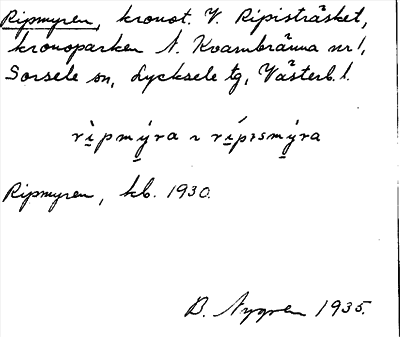 Ripmyren, kronot. V. Ripisträsket,
kronoparken N. Kvarnbränna nr 1,
Sorsele sn, Lycksele tg, Västerb. l.
rìpmýra ~ rípismýra
Ripmyren, kb. 1930.
B. Nygren 1935.